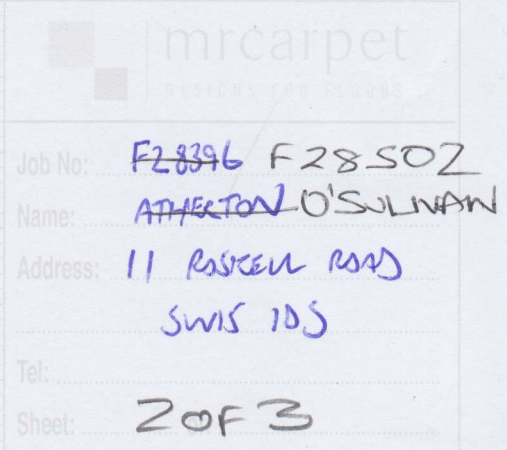 mrcarpet
DESIGNS FOR FLOORS
Job No: F28396 F28502
Name: ATHERTON O'SULLIVAN
Address: 11 ROSKELL ROAD
SW15 1DS
Tel:
Sheet: 2 OF 3